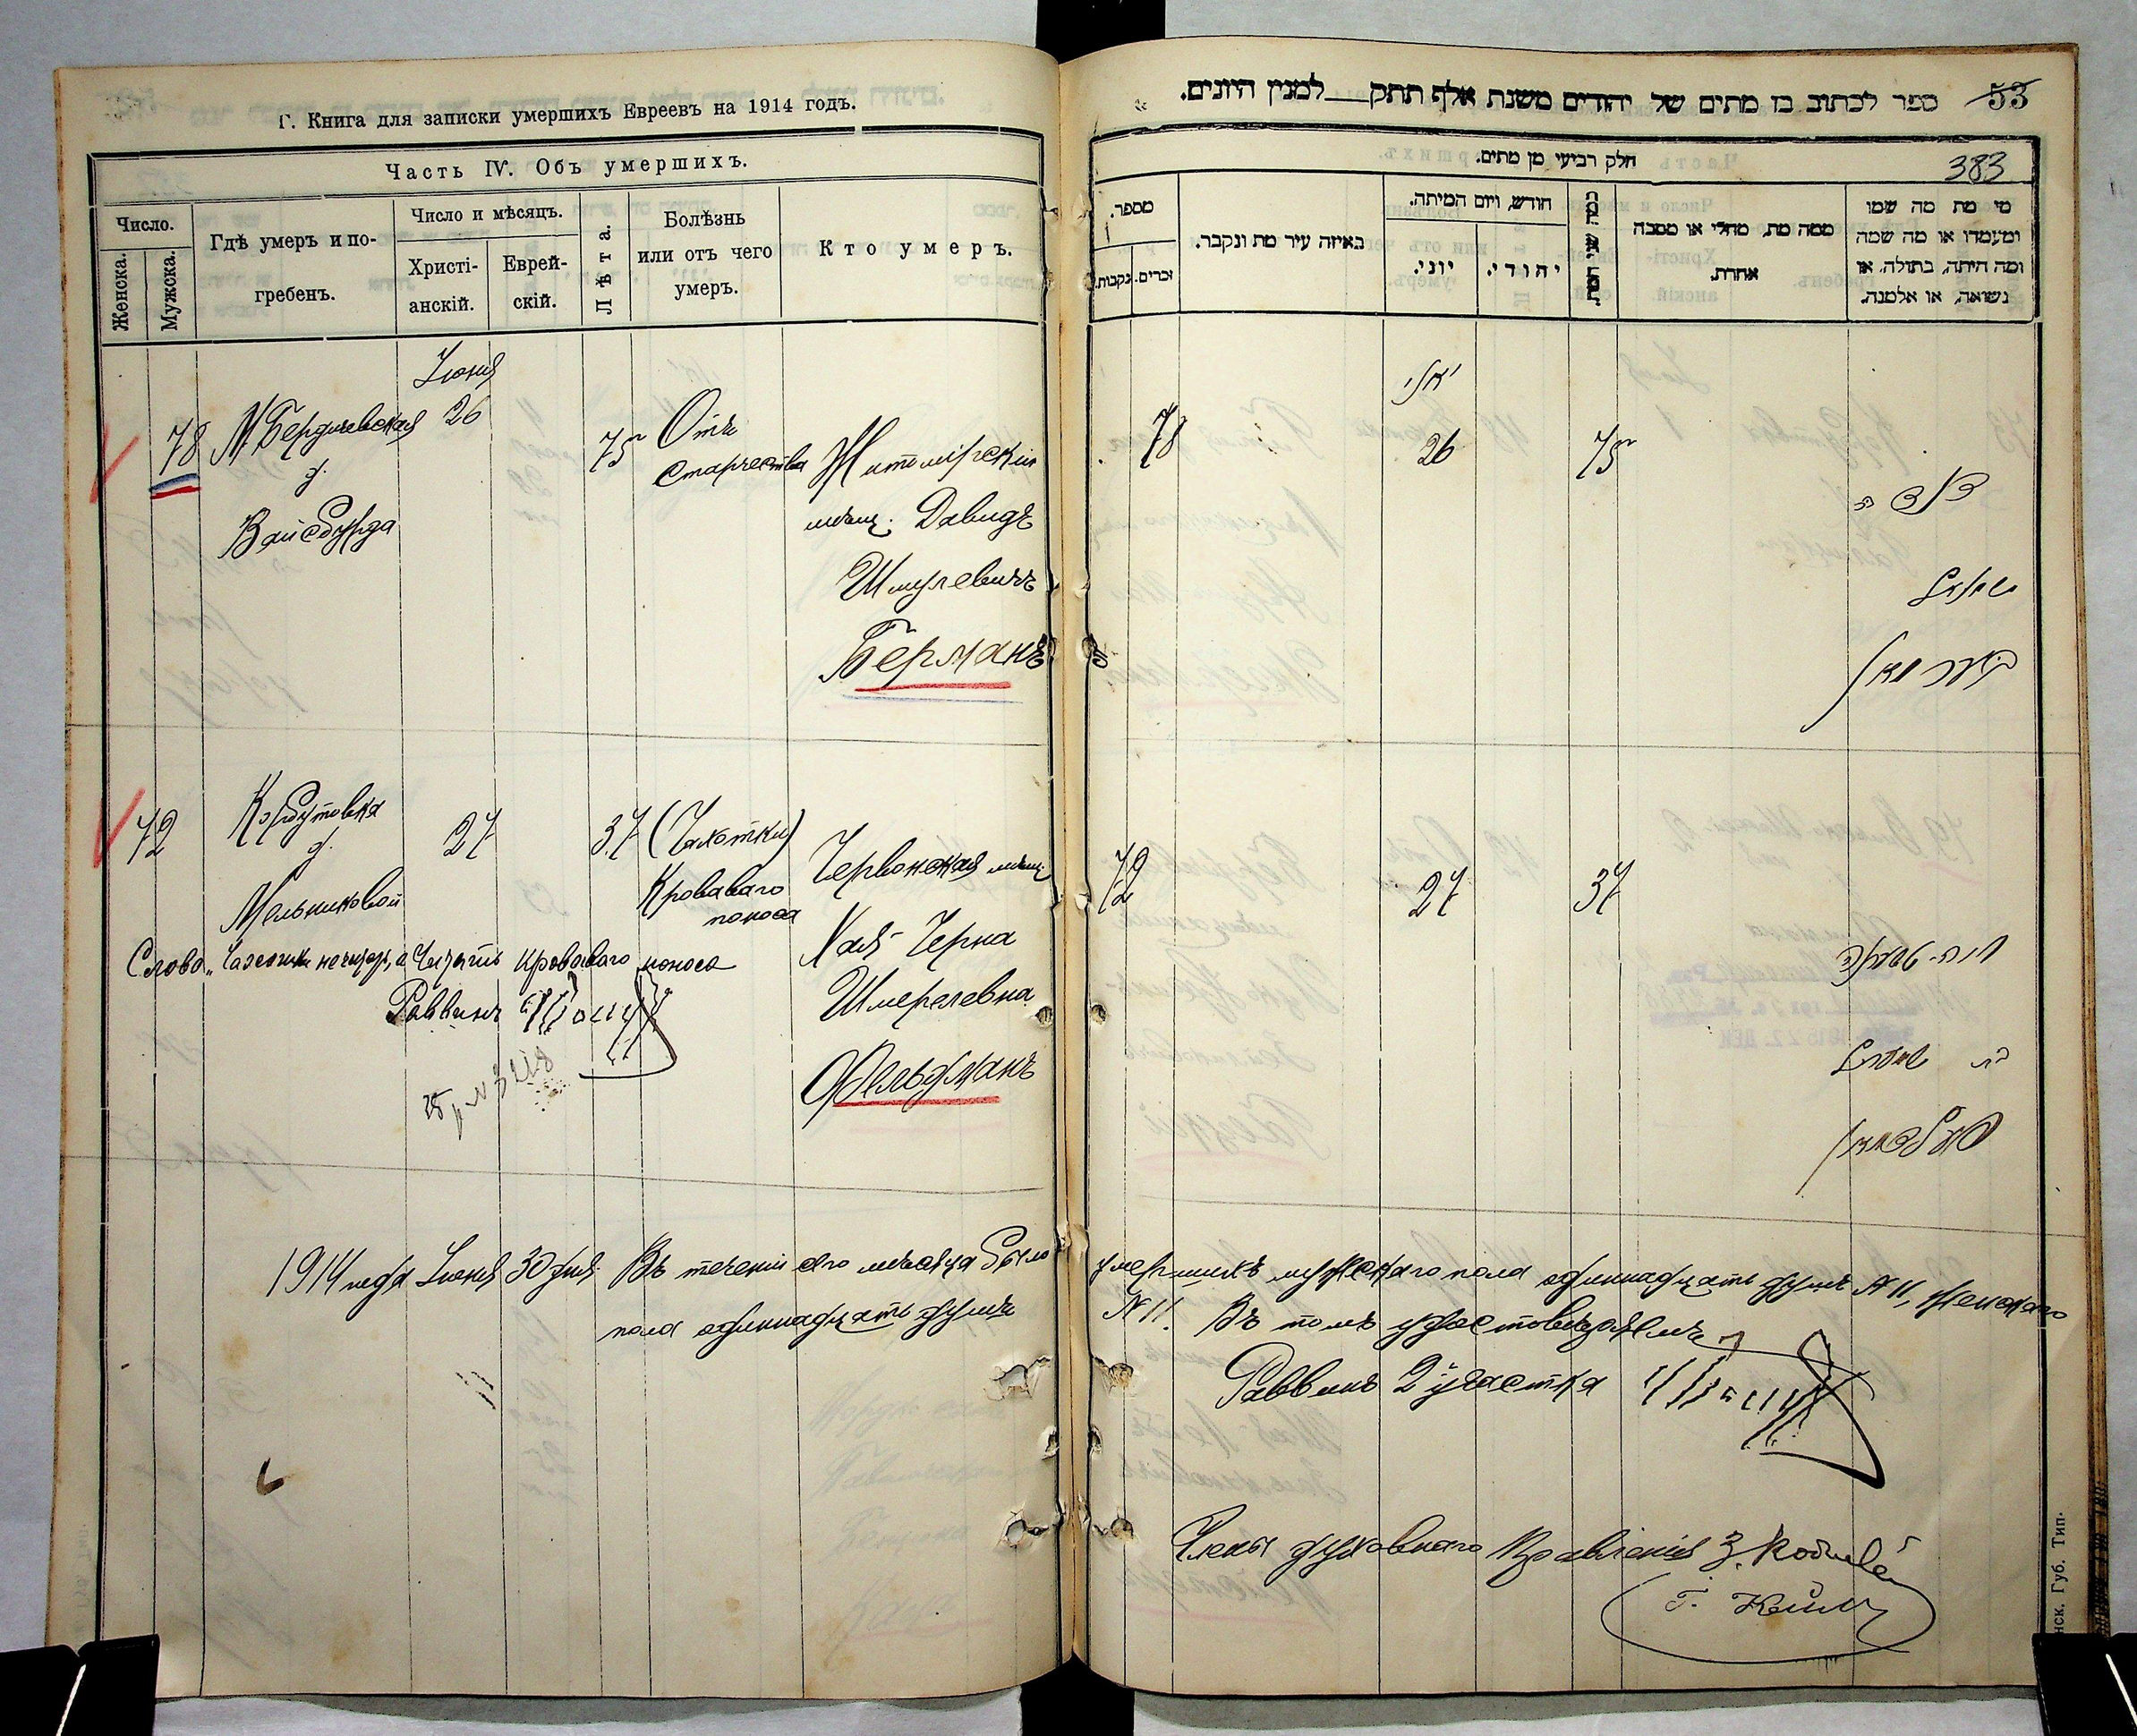 Г. Книга для записки умершихъ Евреевъ на 1914 годъ.
Часть IV. Объ умершихъ.
Число.
Женска.
Мужска.
Гдѣ умеръ и по-
гребенъ.
Число и мѣсяцъ.
Христі-
анскій.
Еврей-
скій.
Лѣта.
Болѣзнь
или отъ чего
умеръ.
Кто умеръ.
Іюня
78 М. Бердичевская 26 75 Отъ
д. старчества Житомірскій
Вайсбурда мѣщ. Давидъ
Шмулевичъ
Берманъ
72 Корбутовка 27 37 (Чахотки)
д. Кроваваго Червонская мѣщ.
Мельниковой поноса
Хая-Черна
Слово „Чахотки не читать, а Читать кроваваго поноса
Шмерелевна
Раввинъ
Фельдманъ
1914 года Іюня 30 дня. Въ теченіи сего мѣсяца было
пола одиннадцать душъ
53 ספר לכתוב בו מתים של יהודים משנת אלף תתק למנין היונים.
חלק רביעי מן מתים.
383
מספר.
נקבות.
זכרים.
באיזה עיר מת ונקבר.
חודש, ויום המיתה.
יוני.
יהודי.
כמה שני המת.
ממה מת, מחלי או מסבה
אחרת.
מי מת מה שמו
ומעמדו או מה שמה
ומה היתה, בתולה, או
נשואה, או אלמנה.
יוני
78 26 75
דוד ב׳
שמואל
בערמאן
72 27 37
חיה-טשרנה
בת שמרל
פעלדמאן
умершихъ мужскаго пола одиннадцать душъ №11, женскаго
№11. Въ томъ удостовѣряемъ
Раввинъ 2 участка
Члены духовнаго Правленія З.
Г.
нск. Губ. Тип.